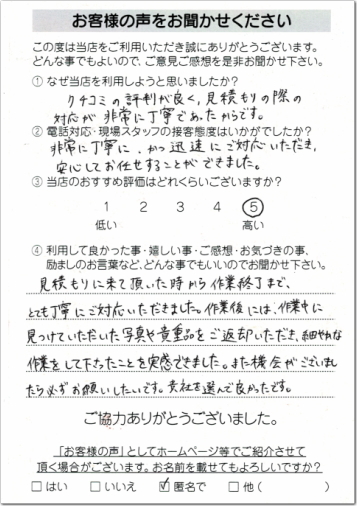 お客様の声をお聞かせください
この度は当店をご利用いただき誠にありがとうございます。
どんな事でもよいので、ご意見ご感想を是非お聞かせ下さい。
① なぜ当店を利用しようと思いましたか?
クチコミの評判が良く、見積もりの際の
対応が非常に丁寧であったからです。
② 電話対応・現場スタッフの接客態度はいかがでしたか?
非常に丁寧に、かつ迅速にご対応いただき、
安心してお任せすることができました。
③ 当店のおすすめ評価はどれくらいございますか?
1 2 3 4 5
低い 高い
④ 利用して良かった事・嬉しい事・ご感想・お気づきの事、
励ましのお言葉など、どんな事でもいいのでお聞かせ下さい。
見積もりに来て頂いた時から作業終了まで、
とても丁寧にご対応いただきました。作業後には、作業中に
見つけていただいた写真や貴重品をご返却いただき、細やかな
作業をして下さったことを実感できました。また機会がございまし
たら必ずお願いしたいです。貴社を選んで良かったです。
ご協力ありがとうございました。
「お客様の声」としてホームページ等でご紹介させて
頂く場合がございます。お名前を載せてもよろしいですか?
□ はい □ いいえ ☑ 匿名で □ 他( )